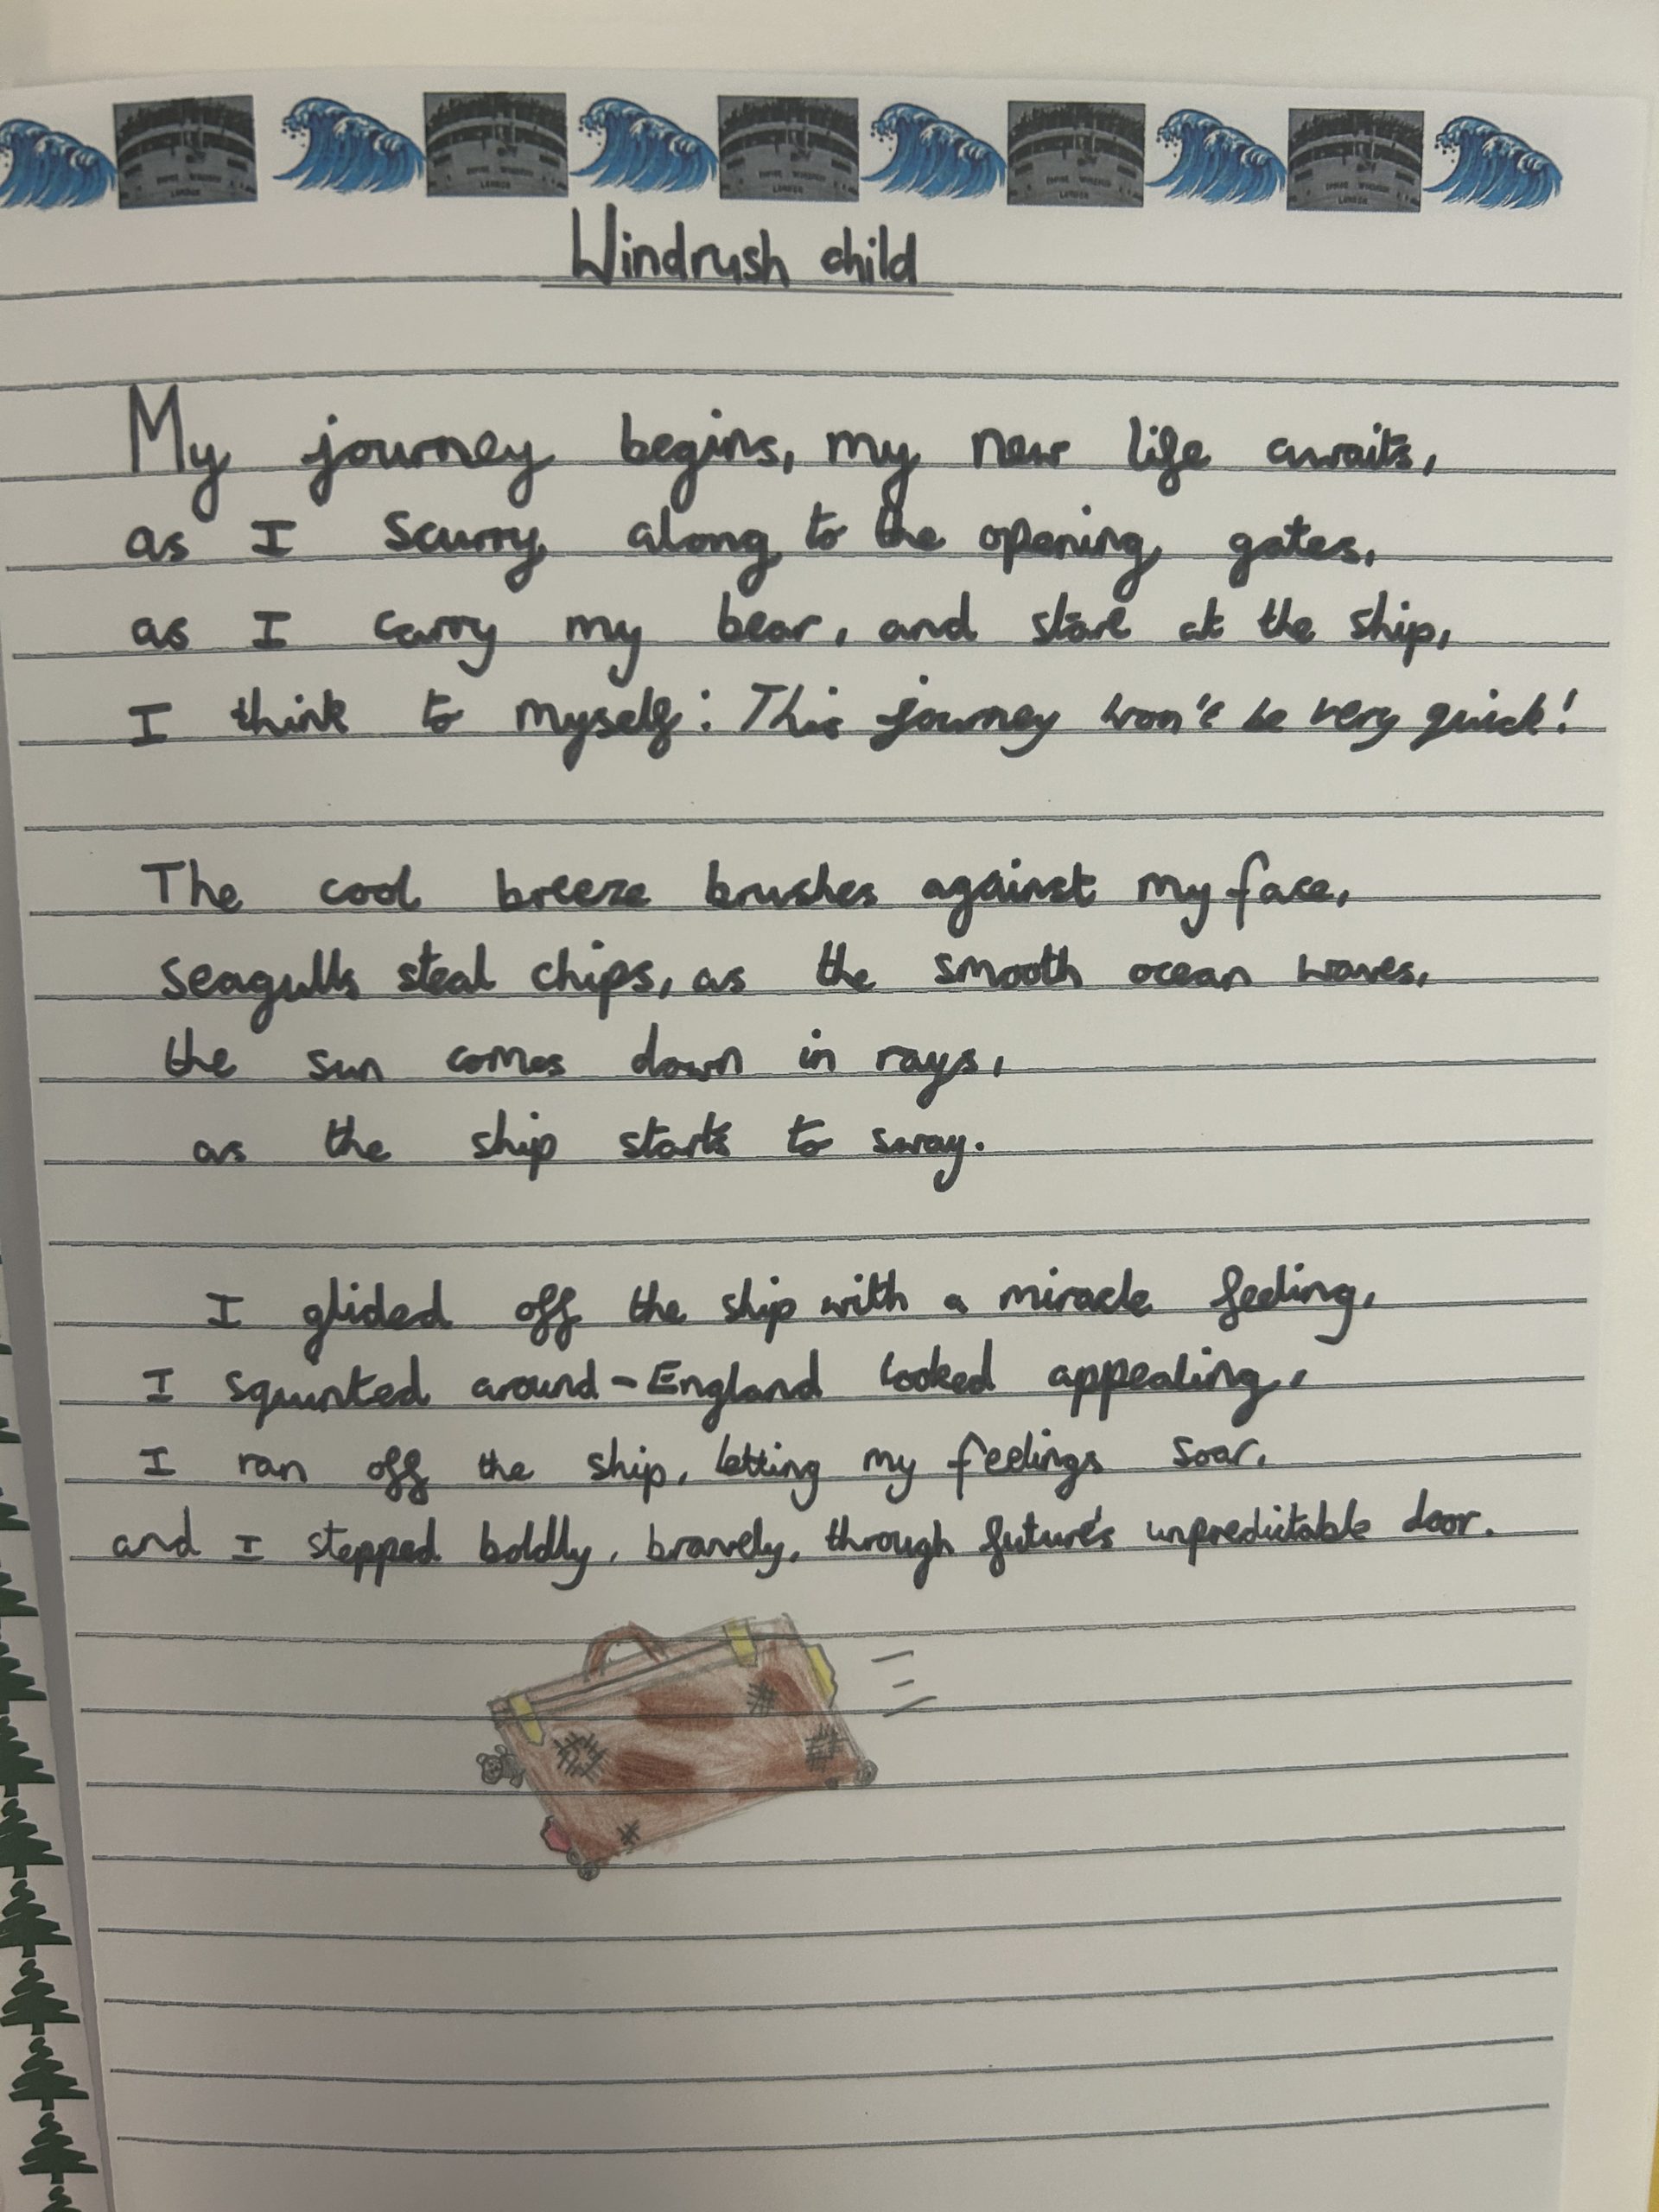 Windrush child
My journey begins, my new life awaits,
as I scurry along to the opening gates,
as I carry my bear, and stare at the ship,
I think to myself: This journey won't be very quick!
The cool breeze brushes against my face,
seagulls steal chips, as the smooth ocean waves,
the sun comes down in rays,
as the ship starts to sway.
I glided off the ship with a miracle feeling,
I squinted around - England looked appealing,
I ran off the ship, letting my feelings soar,
and I stepped boldly, bravely, through future's unpredictable door.